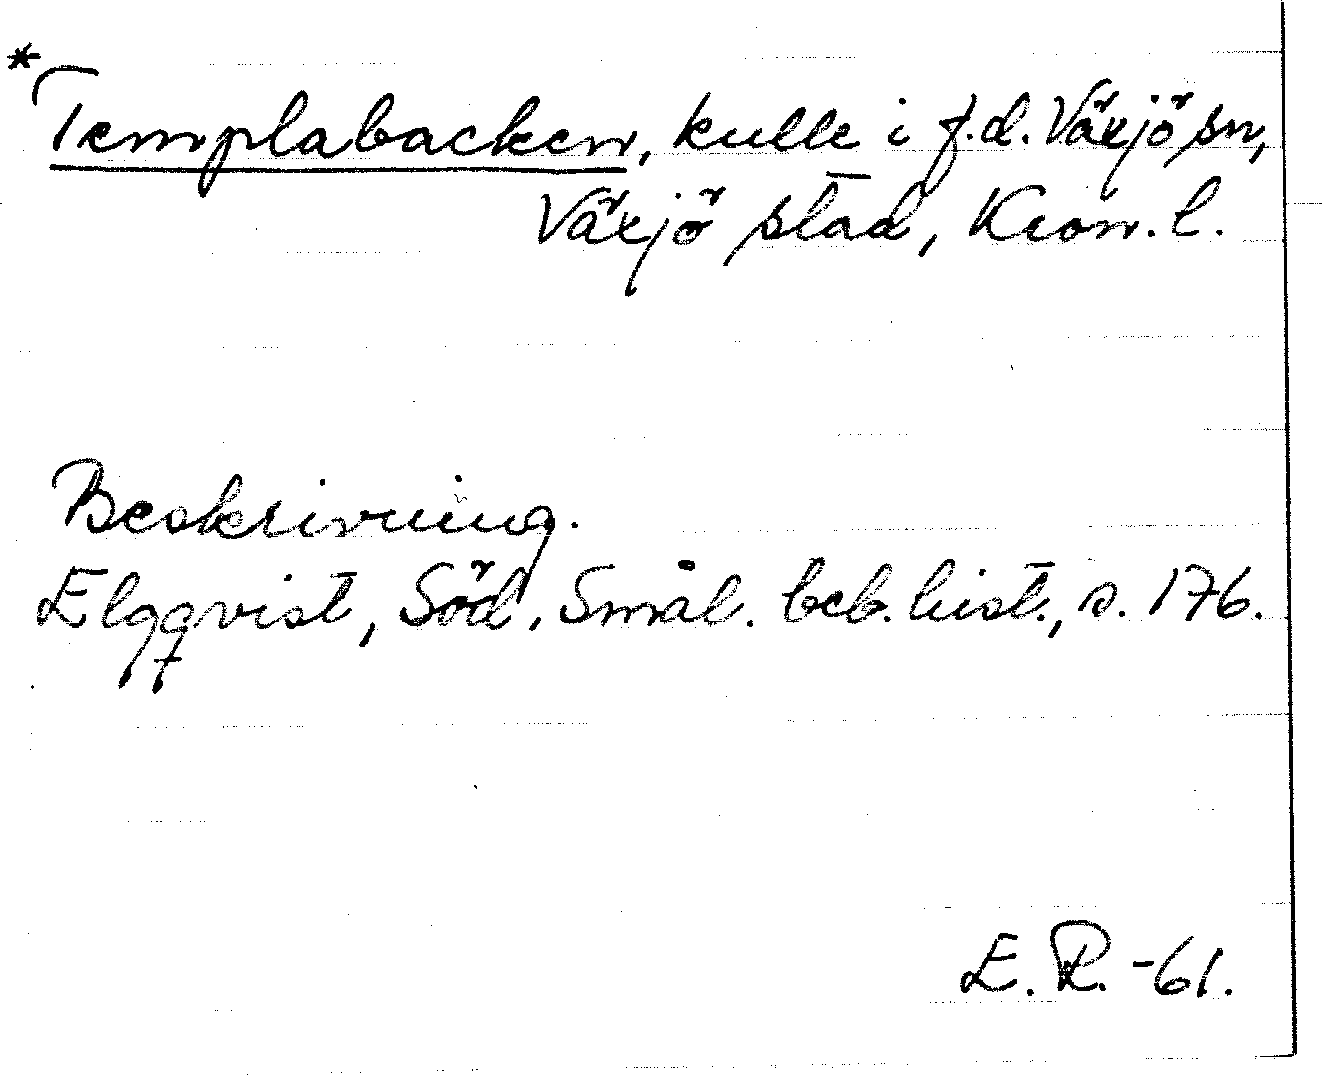 * Templabacken, kulle i f.d. Växjö sn,
Växjö stad, Kron. l.
Beskrivning.
Elgqvist, Söd. Smål. beb. hist., s. 176.
E. R. -61.